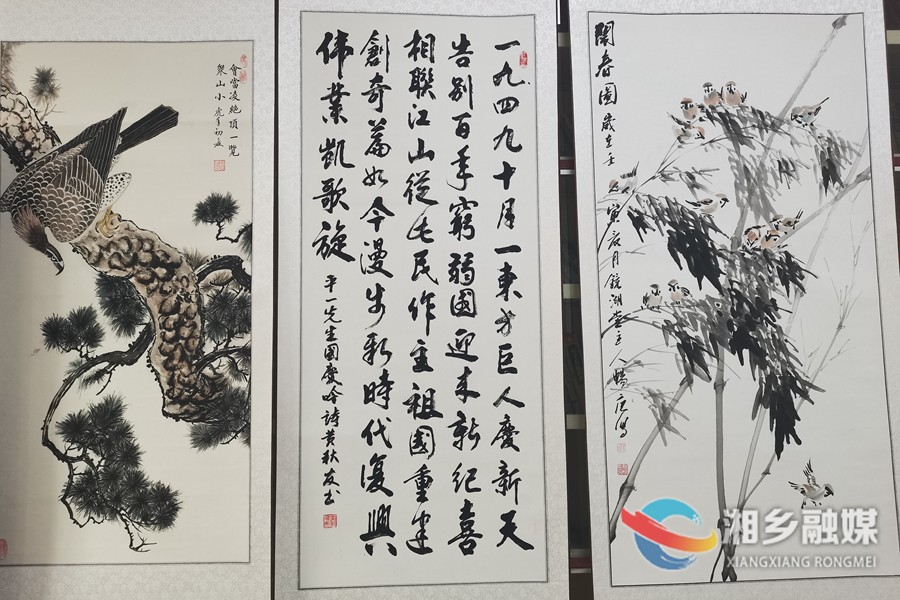 會當凌絕頂一覽
衆山小虎年初夏
一九四九十月一東方巨人慶新天
告别百年窮弱國迎来新纪喜
相聯江山從此民作主祖國重建
創奇篇如今漫步新時代復興
伟業凯歌旋
平一先生國慶吟詩黄秋友书
鬧春圖歲在壬
寅辰月鏡湖堂主人
湘乡融媒
XIANGXIANG RONGMEI